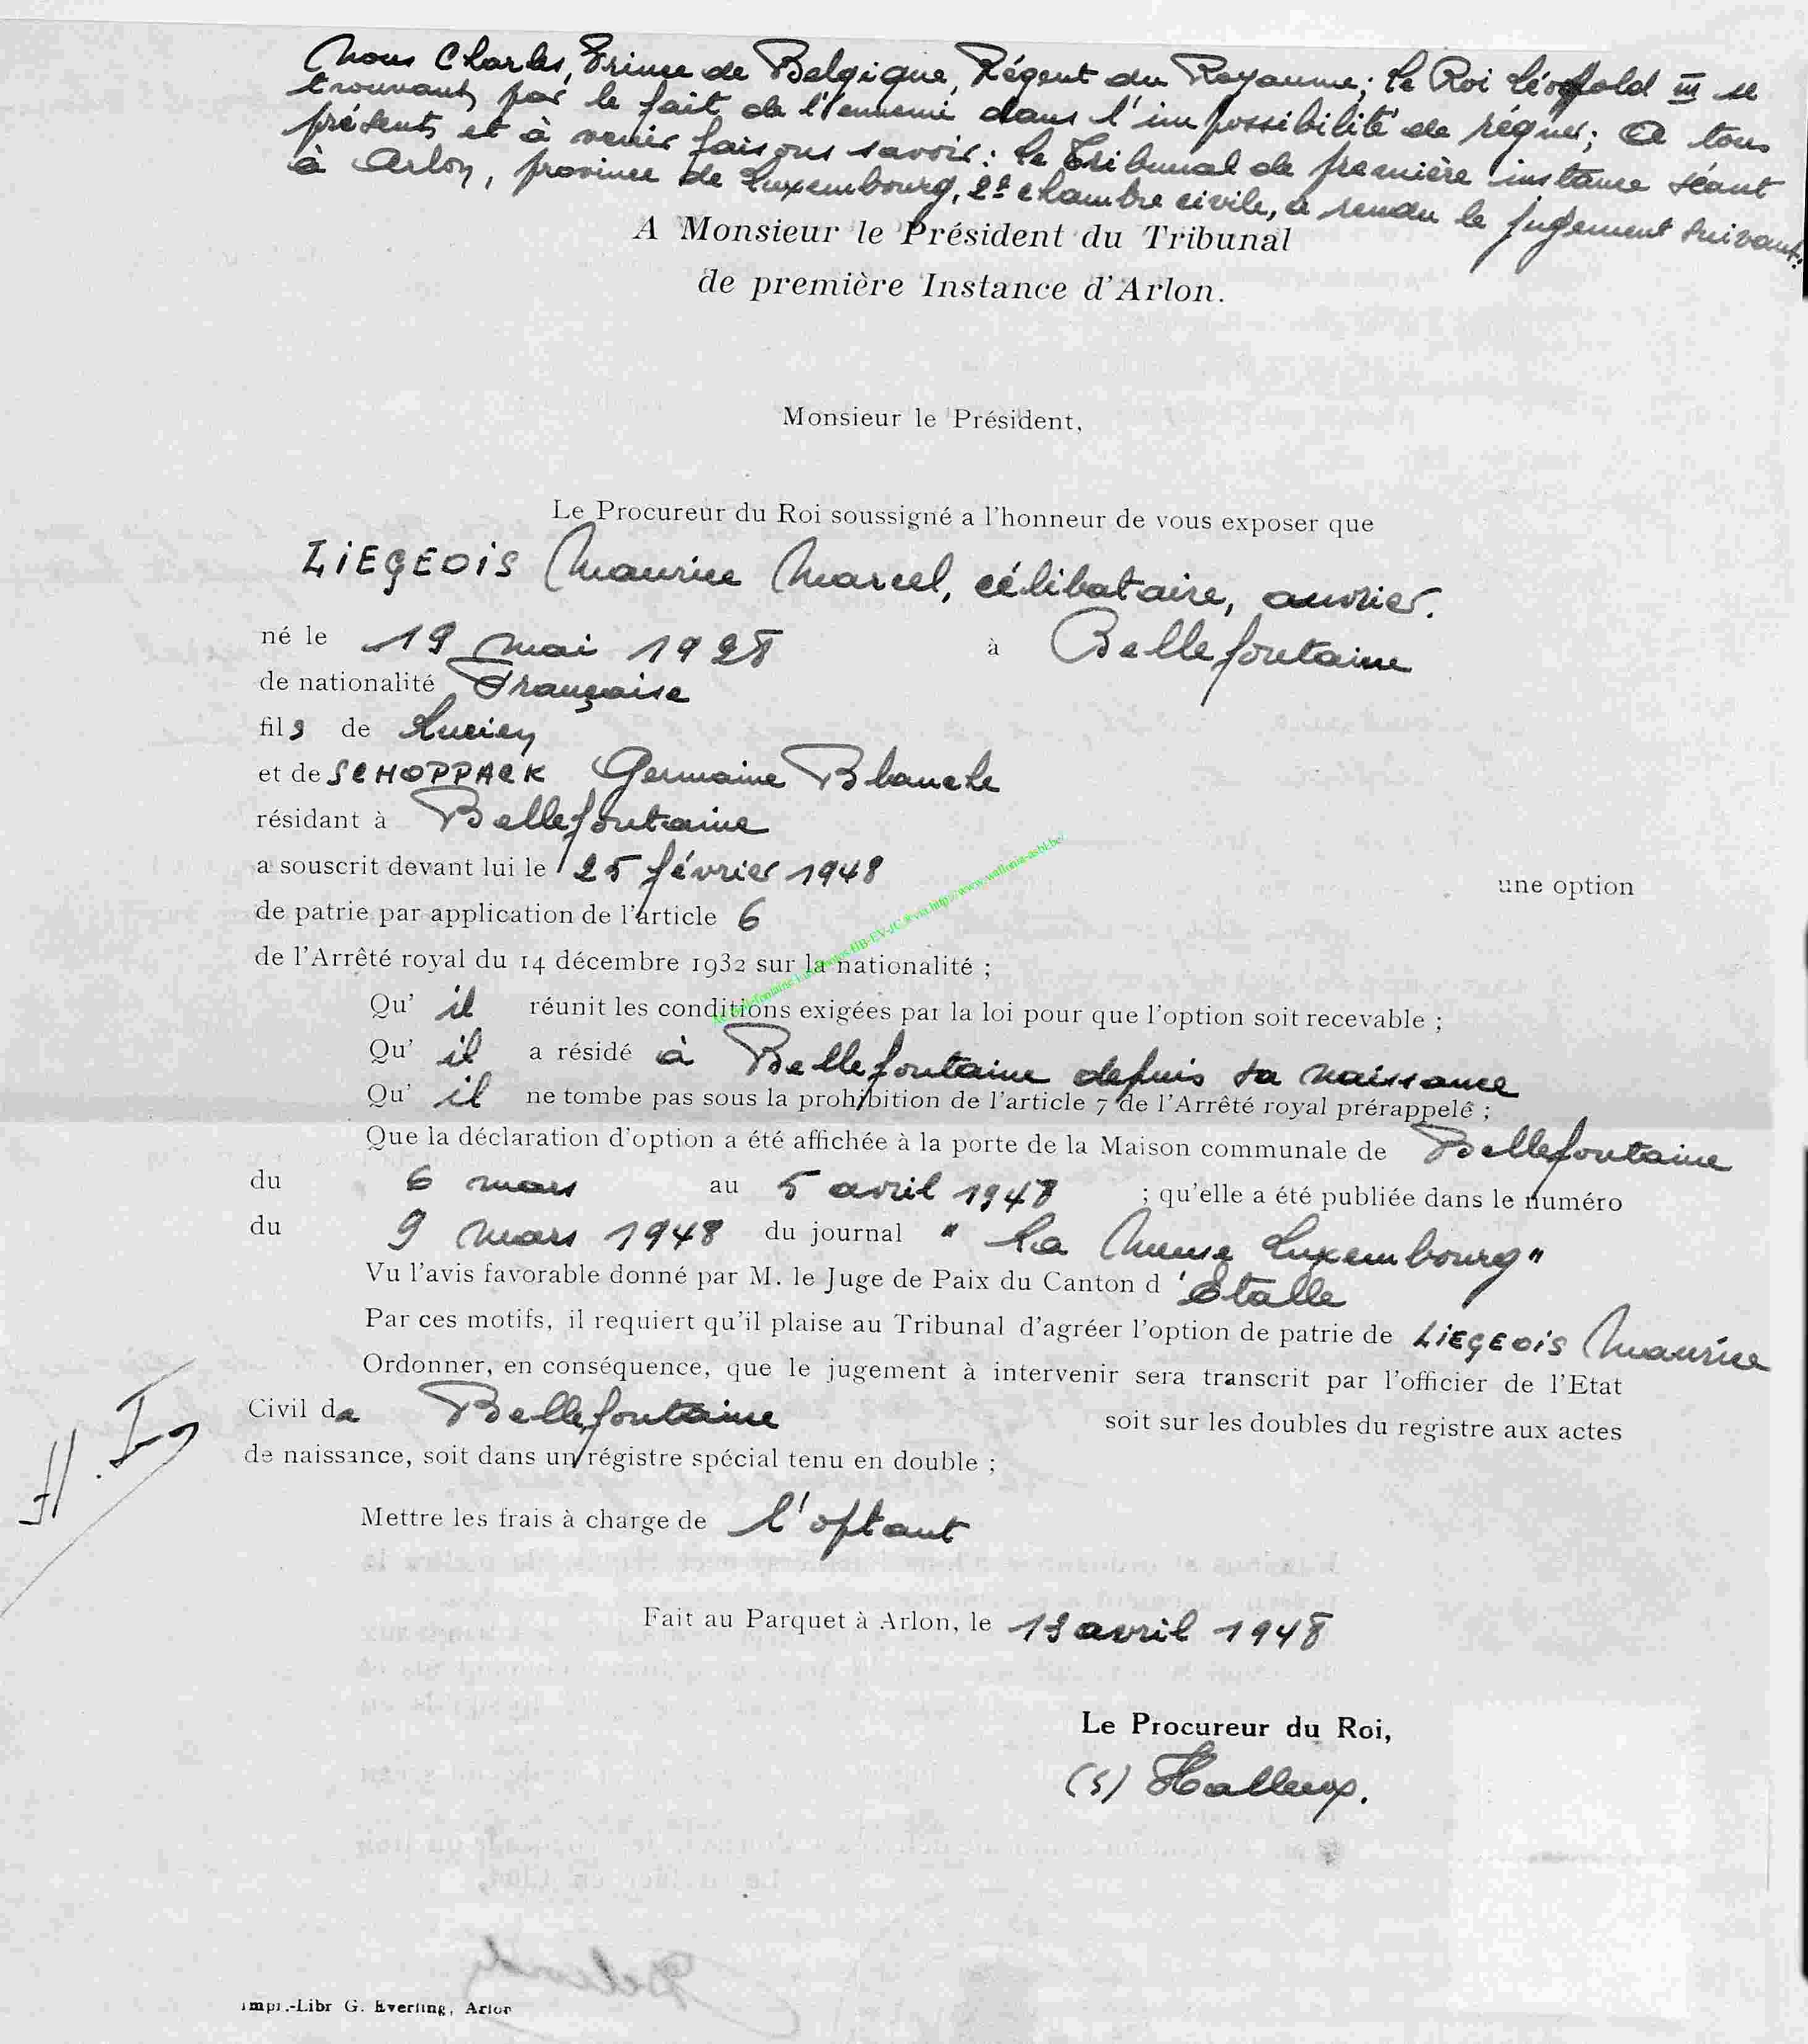 Nous Charles, Prince de Belgique, Régent du Royaume; Le Roi Léopold III se
trouvant, par le fait de l'ennemi dans l'impossibilité de régner; A tous
présents et à venir faisons savoir: Le Tribunal de première instance séant
à Arlon, province de Luxembourg, 2e chambre civile, a rendu le jugement suivant:
A Monsieur le Président du Tribunal
de première Instance d'Arlon.
Monsieur le Président,
Le Procureur du Roi soussigné a l'honneur de vous exposer que
LIEGEOIS Maurice Marcel, célibataire, ouvrier.
né le 19 mai 1928 à Bellefontaine
de nationalité Française
fils de Lucien
et de SCHOPPACK Germaine Blanche
résidant à Bellefontaine
a souscrit devant lui le 25 février 1948 une option
de patrie par application de l'article 6
de l'Arrêté royal du 14 décembre 1932 sur la nationalité ;
Qu' il réunit les conditions exigées par la loi pour que l'option soit recevable ;
Qu' il a résidé à Bellefontaine depuis sa naissance
Qu' il ne tombe pas sous la prohibition de l'article 7 de l'Arrêté royal prérappelé ;
Que la déclaration d'option a été affichée à la porte de la Maison communale de Bellefontaine
du 6 mars au 5 avril 1948 ; qu'elle a été publiée dans le numéro
du 9 mars 1948 du journal " La Meuse Luxembourg"
Vu l'avis favorable donné par M. le Juge de Paix du Canton d 'Etalle
Par ces motifs, il requiert qu'il plaise au Tribunal d'agréer l'option de patrie de LIEGEOIS Maurice
Ordonner, en conséquence, que le jugement à intervenir sera transcrit par l'officier de l'Etat
Civil de Bellefontaine soit sur les doubles du registre aux actes
de naissance, soit dans un régistre spécial tenu en double ;
Mettre les frais à charge de l'optant
Fait au Parquet à Arlon, le 13 avril 1948
Le Procureur du Roi,
(s) Halleux.
Impr.-Libr G. Everling, Arlon